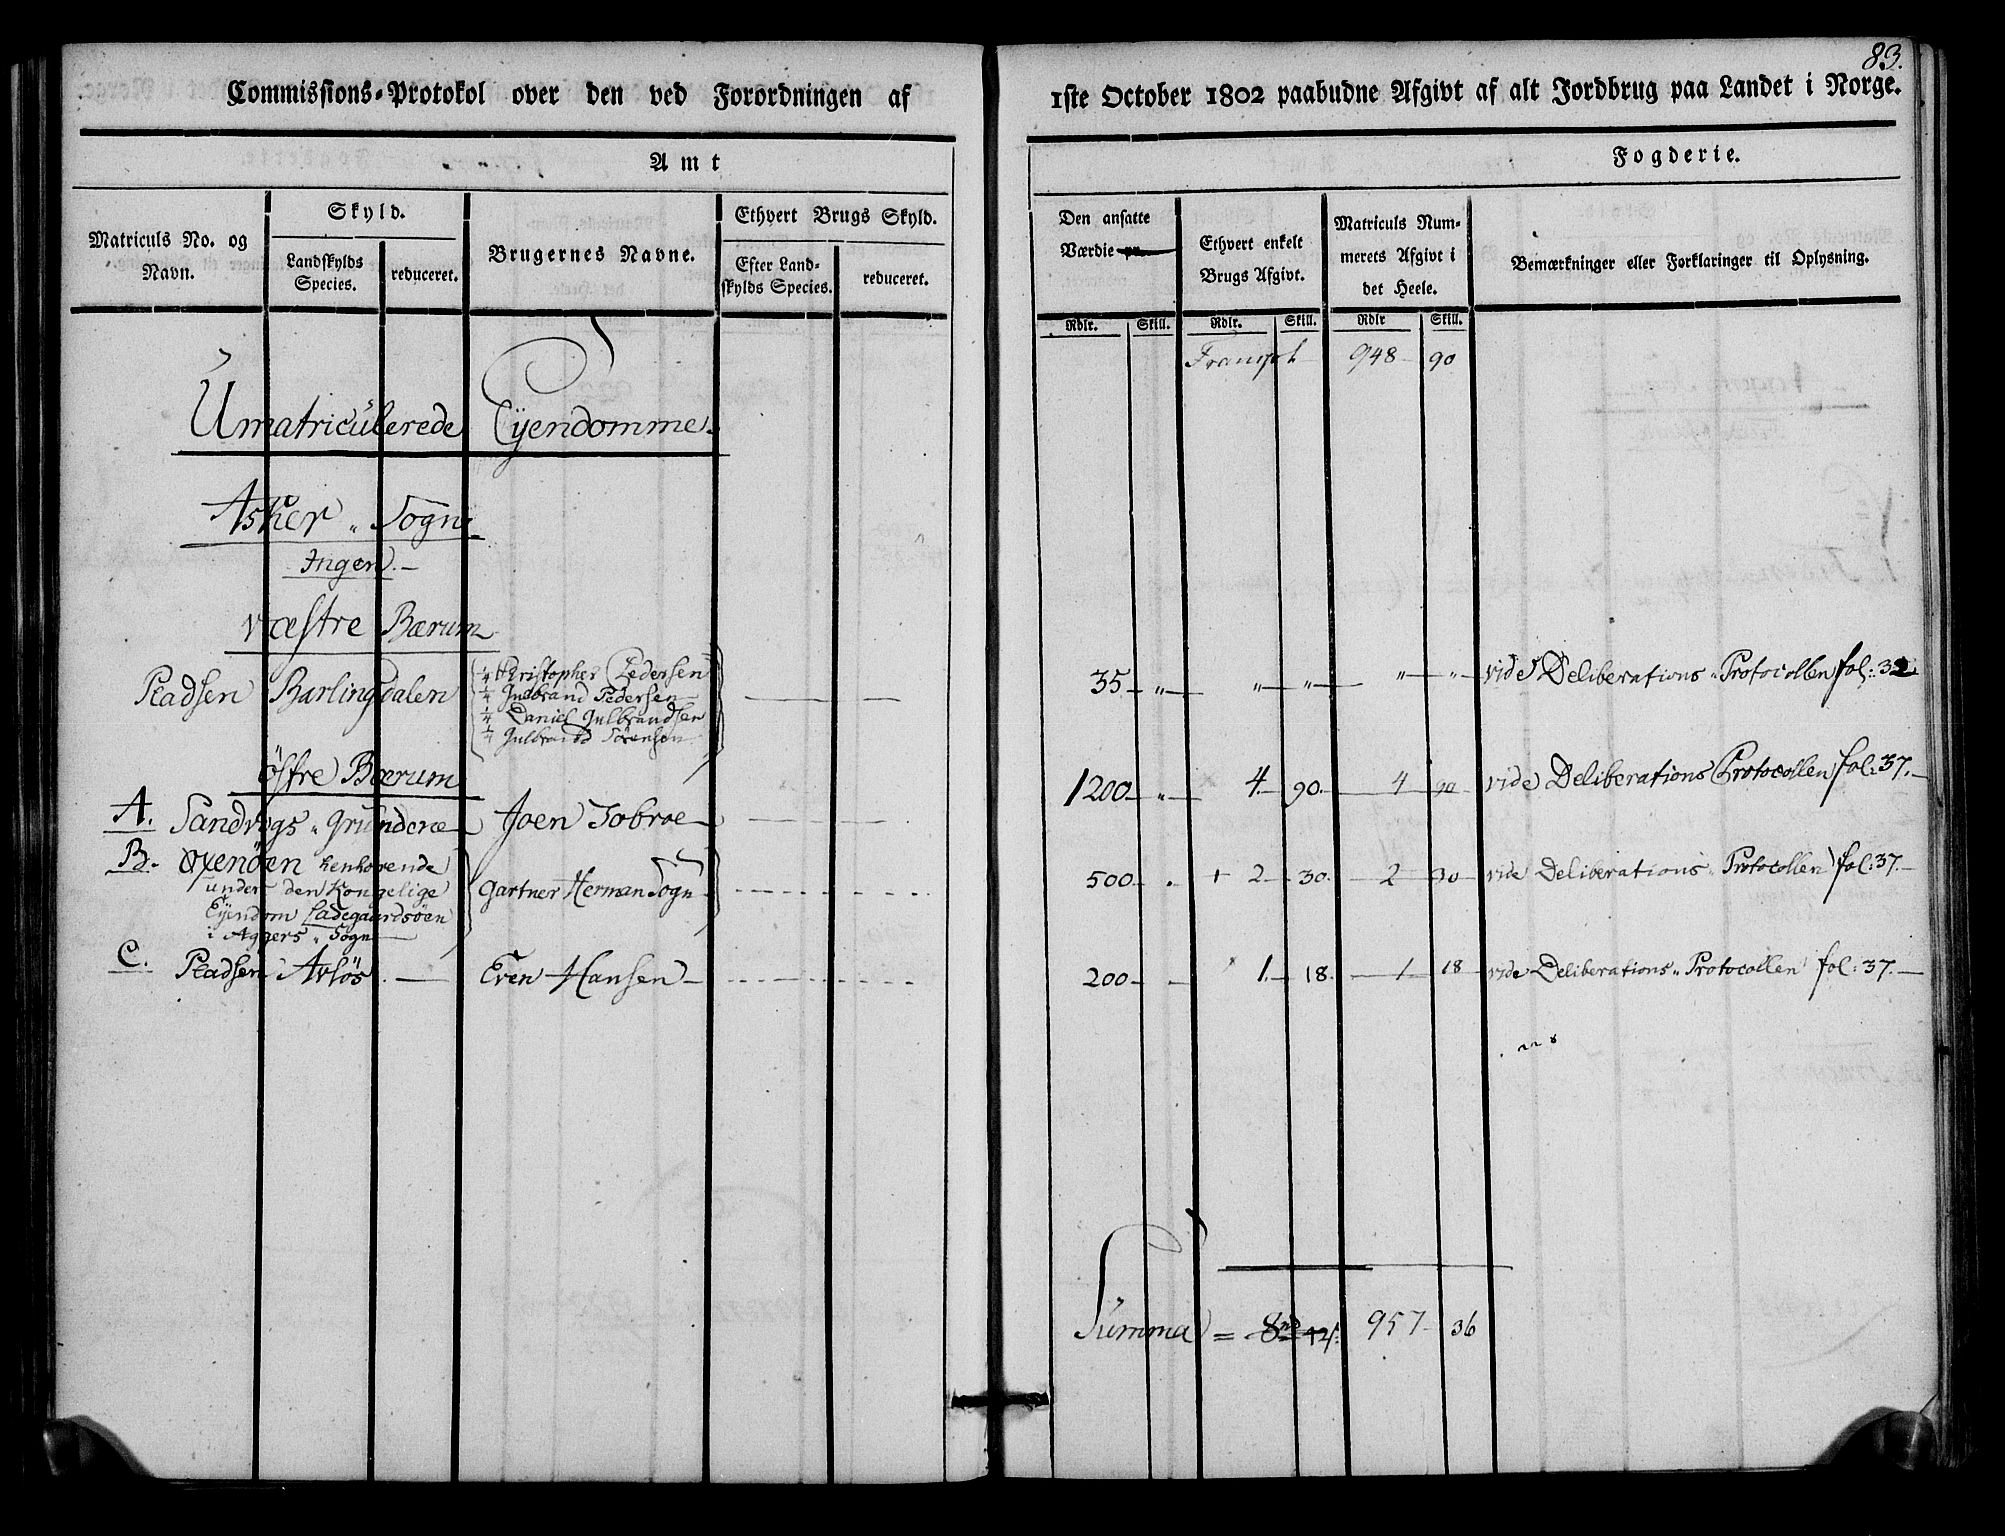 83.
Commissions-Protokol over den ved Forordningen af 1ste October 1802 paabudne Afgivt af alt Jordbrug paa Landet i Norge.
Amt
Fogderie.
Matriculs No. og Navn.
Skyld.
Landskylds Species.
reduceret.
Brugernes Navne.
Ethvert Brugs Skyld.
Efter Landskylds Species.
reduceret.
Den ansatte Værdie pr.
Ethvert enkelt Brugs Afgivt.
Matriculs Nummerets Afgivt i det Heele.
Bemærkninger eller Forklaringer til Oplysning.
Rdlr. Skill. Rdlr. Skill. Rdlr Skill.
Transpt 948 90
Umatriculerede Eyendomme.
Asker Sogn
Ingen.
væstre Bærum
Pladsen Barlingdalen
1/4 Christopher Pedersen
1/4 Gulbrand Pedersen
1/4 Daniel Gulbrandsen
1/4 Gulbrand Sørensen
35 " " " " " vide Deliberations Protocollen fol: 32
østre Bærum
A. Sandvigs Grunderne Joen Tobroe 1200 " 4 90 4 90 vide Deliberations Protocollen fol: 37.
B. Oxenöen henhørende
under den Kongelige
Eyendom Ladegaardsöen
i Aggers Sogn
Gartner Herman Sogn 500 . 2 30 2 30 vide Deliberations Protocollen fol: 37.
C. Pladsen Arløs Even Hansen 200 1 18 1 18 vide Deliberations Protocollen fol: 37.
Summa = 8 rd 42 s: 957 36